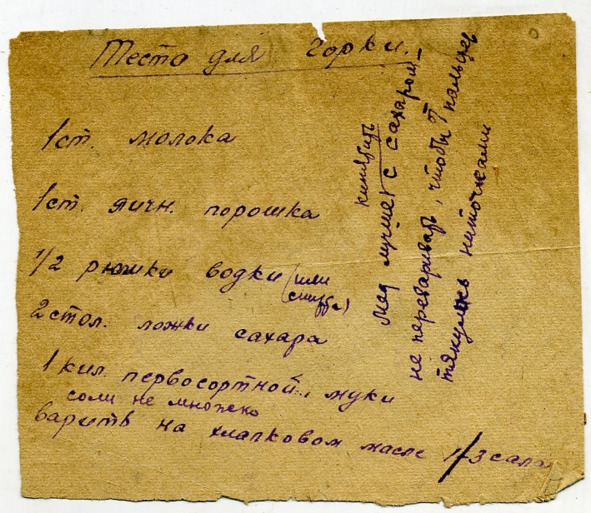 Тесто для Горки.
1 ст. молока
1 ст. яичн. порошка
1/2 рюмки водки (или
спирта)
2 стол. ложки сахара
1 кил. первосортной, муки
соли не множко
варить на хлапковом масле 1/3 сала
кипятить
Мед лучше с сахаром –
не переваривать, чтобы от пальцев
тянулось ниточками